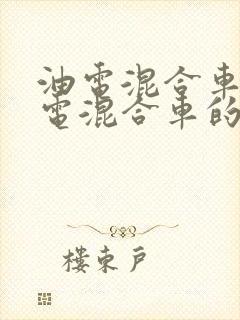 油電混合車
電混合車的
樓東戶